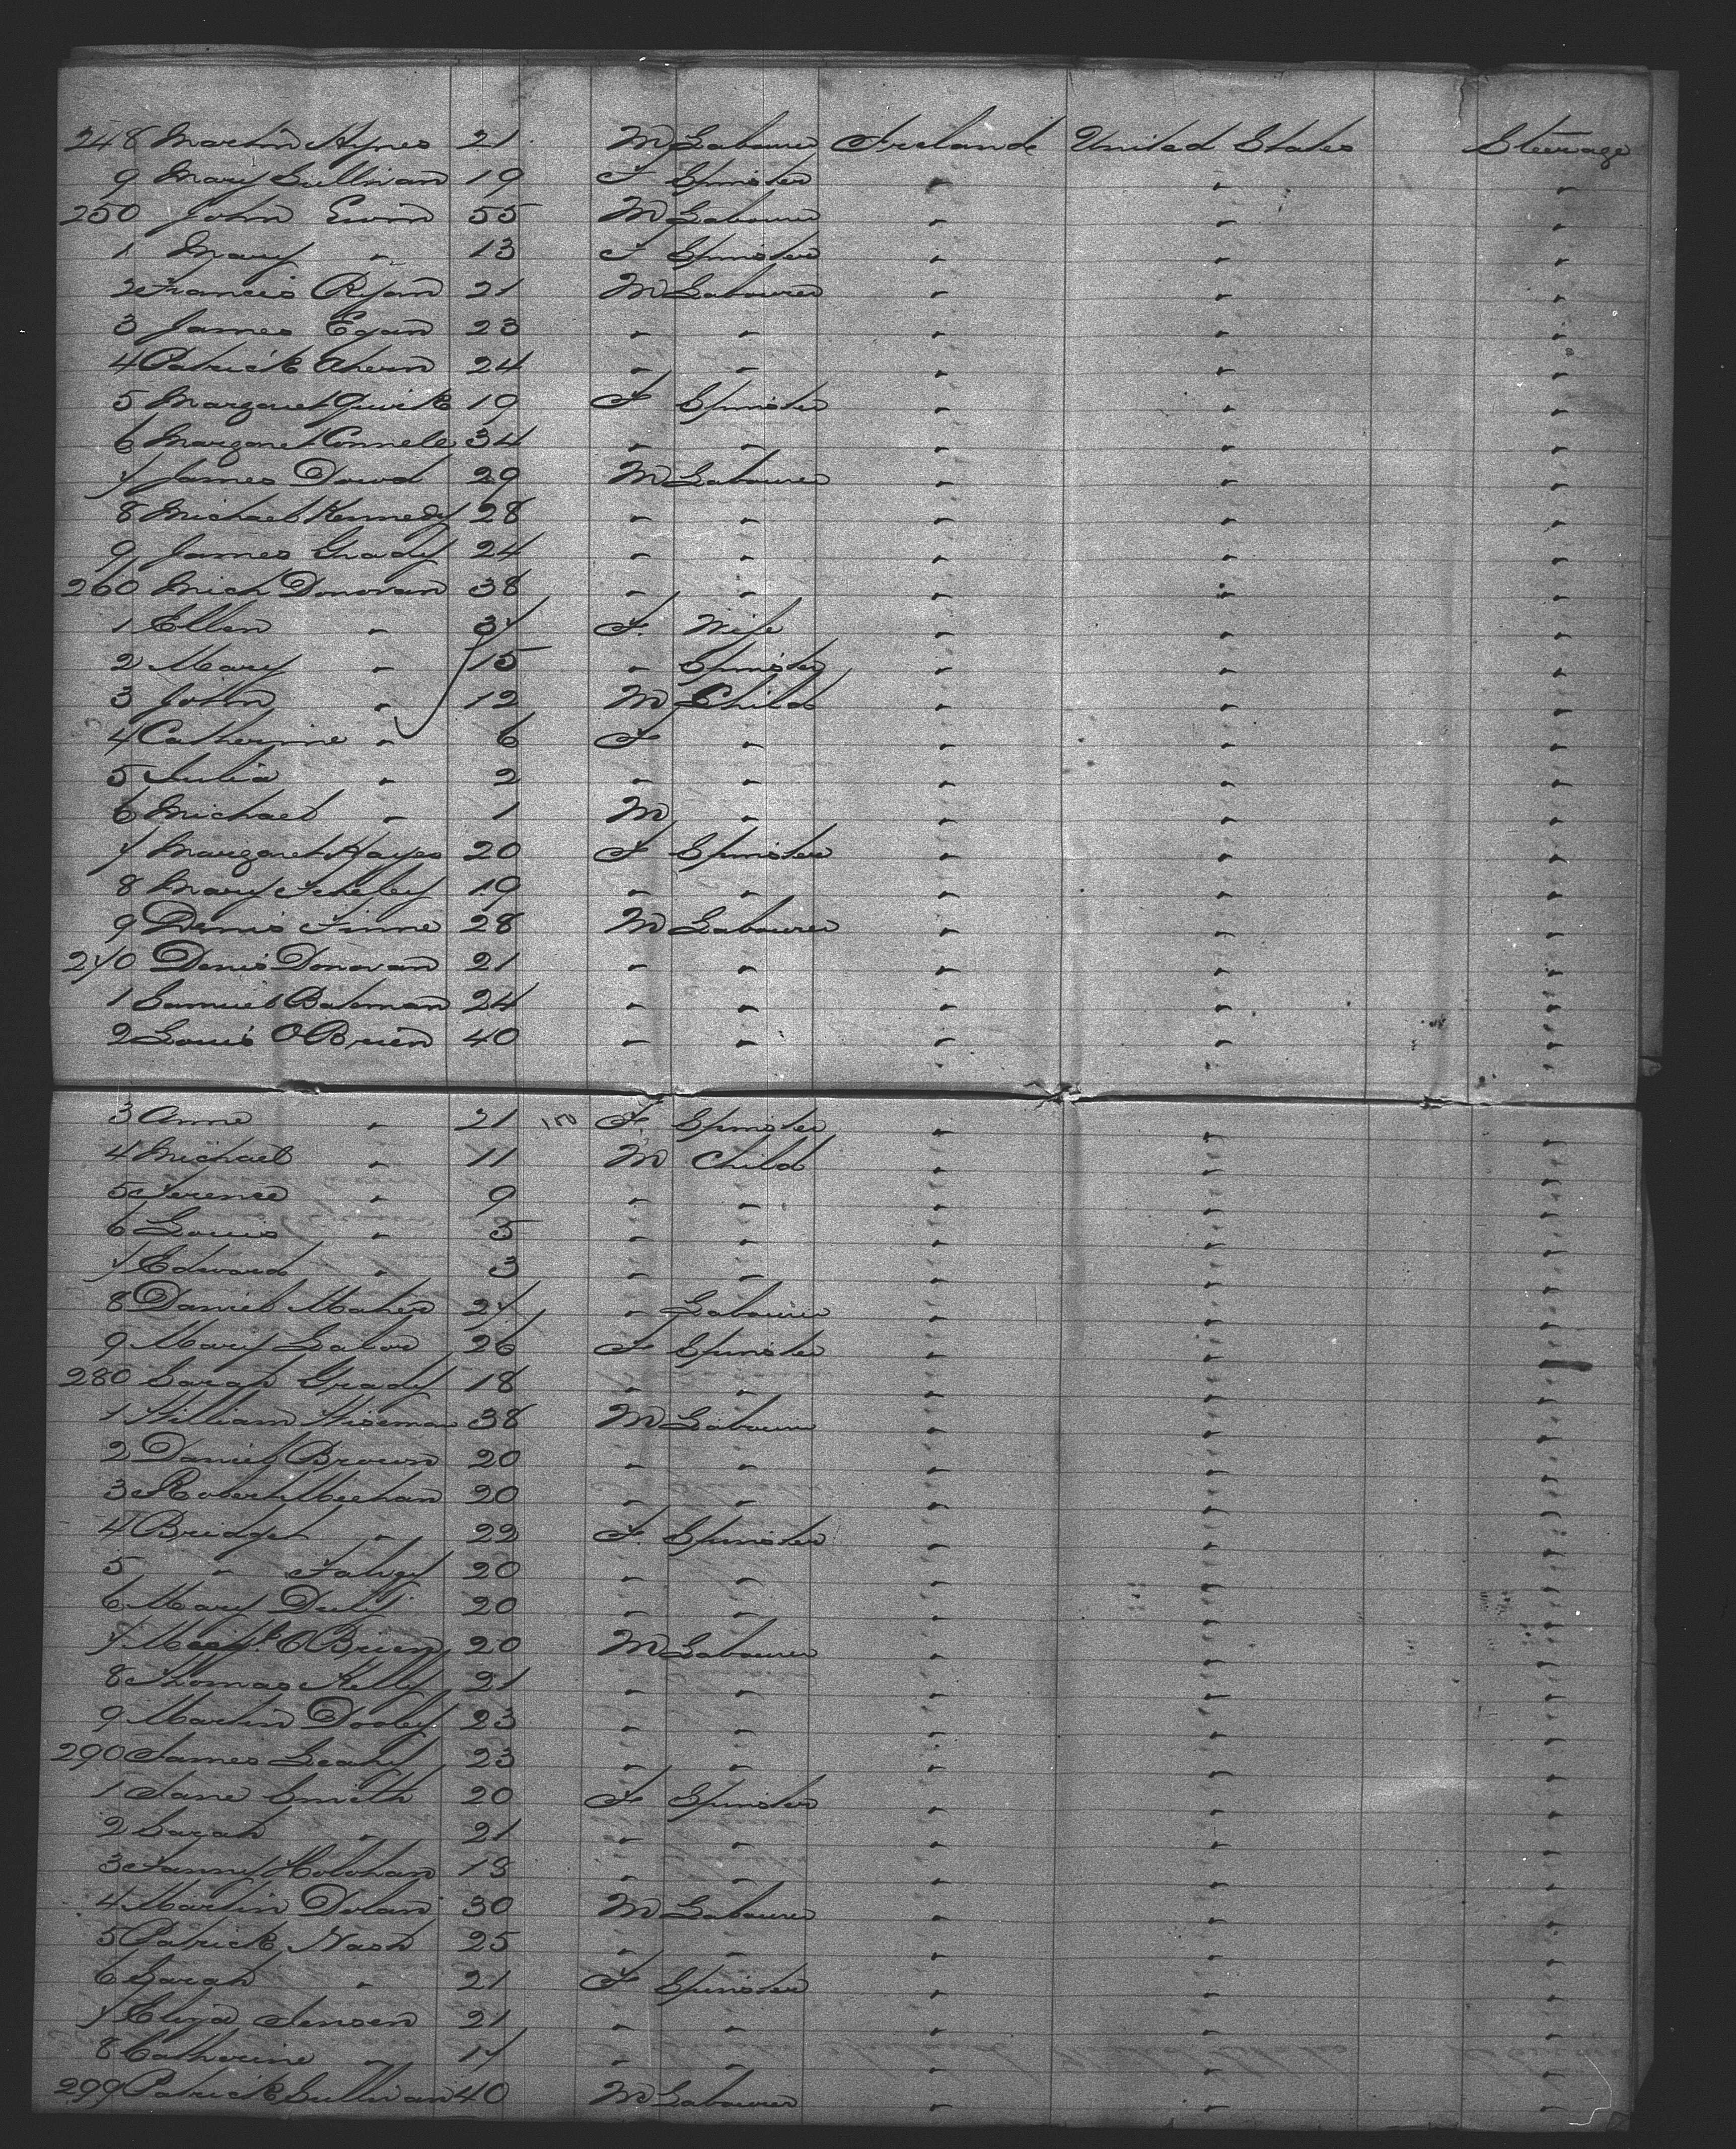 248 Martin Hynes 21 M Labourer Ireland United States Steerage
9 Mary Sullivan 19 F Spinster " " "
250 John 55 M Labourer " " "
1 Mary " 13 F Spinster " " "
2 Francis Ryan 21 M Labourer " " "
3 James Egan 23 " " " " "
4 Patrick Ahern 24 " " " " "
5 Margaret Quirk 19 F Spinster " " "
6 Margaret Connele 34 " " " " "
7 James Dowd 29 M Labourer " " "
8 Michael Kennedy 28 " " " " "
9 James Grady 24 " " " " "
260 Mich Donovan 38 " " " " "
1 Ellen " 37 F. Wife " " "
2 Mary " 15 " Spinster " " "
3 John " 12 M Child " " "
4 Catherine " 6 F " " " "
5 Julia " 2 " " " " "
6 Michael " 1 M " " " "
7 Margaret Hayes 20 F Spinster " " "
8 Mary 19 " " " " "
9 Denis Finne 28 M Labourer " " "
270 Denis Donovan 21 " " " " "
1 Samuel Bateman 24 " " " " "
2 Louis O Brien 40 " " " " "
3 Anne " 21 F. Spinster " " "
4 Michael " 11 M Child " " "
5 Terence " 9 " " " " "
6 Louis " 5 " " " " "
7 Edward " 3 " " " " "
8 Daniel Maher 27 " Labourer " " "
9 Mary Lalor 26 F Spinster " " "
280 Sarah Grady 18 " " " " "
1 William Wiseman 38 M Labourer " " "
2 Daniel Brown 20 " " " " "
3 Robert Meehan 20 " " " " "
4 Bridget " 22 F. Spinster " " "
5 " Falvey 20 " " " " "
6 Mary 20 " " " " "
7 O Brien 20 M Labourer " " "
8 Thomas Kelly 21 " " " " "
9 Martin Dooley 23 " " " " "
290 James Leahy 23 " " " " "
1 Jane Smith 20 F Spinster " " "
2 Sarah " 21 " " " " "
3 Fanny Holohan 18 " " " " "
4 Martin Dolan 30 M Labourer " " "
5 Patrick Nash 25 " " " " "
6 Sarah " 21 F Spinster " " "
7 Eliza Jensen 21 " " " " "
8 Catherine " 17 " " " " "
299 Patrick Sullivan 40 M Labourer " " "